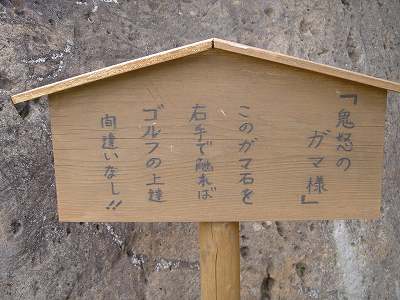 「鬼怒の
ガマ様」
このガマ石を
右手で触れば
ゴルフの上達
間違いなし!!